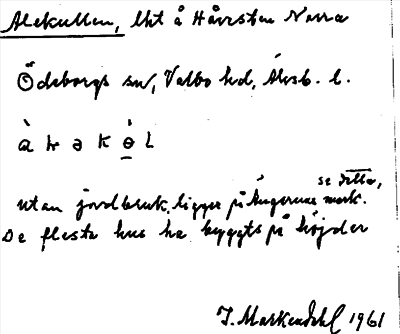 Alekullen, lht å Håvesten Norra
Ödeborgs sn, Valbo hd, Älvsb. l.
se detta,
utan jordbruk, ligger på Ängarnas mark.
De flesta hus ha byggts på höjder
J. Markendahl 1961